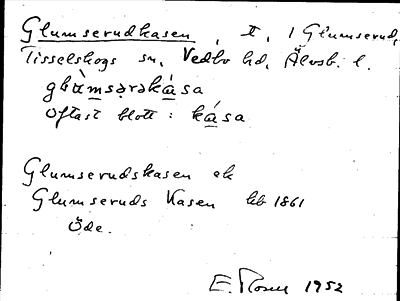 Glumserudkasen, t, i Glumserud,
Tisselskogs sn, Vedbo hd, Älvsb. l.
glùmsərəkása
oftast blott: kása
Glumserudskasen ek
Glumseruds Kasen hb 1861
Öde.
E. Rosell 1952